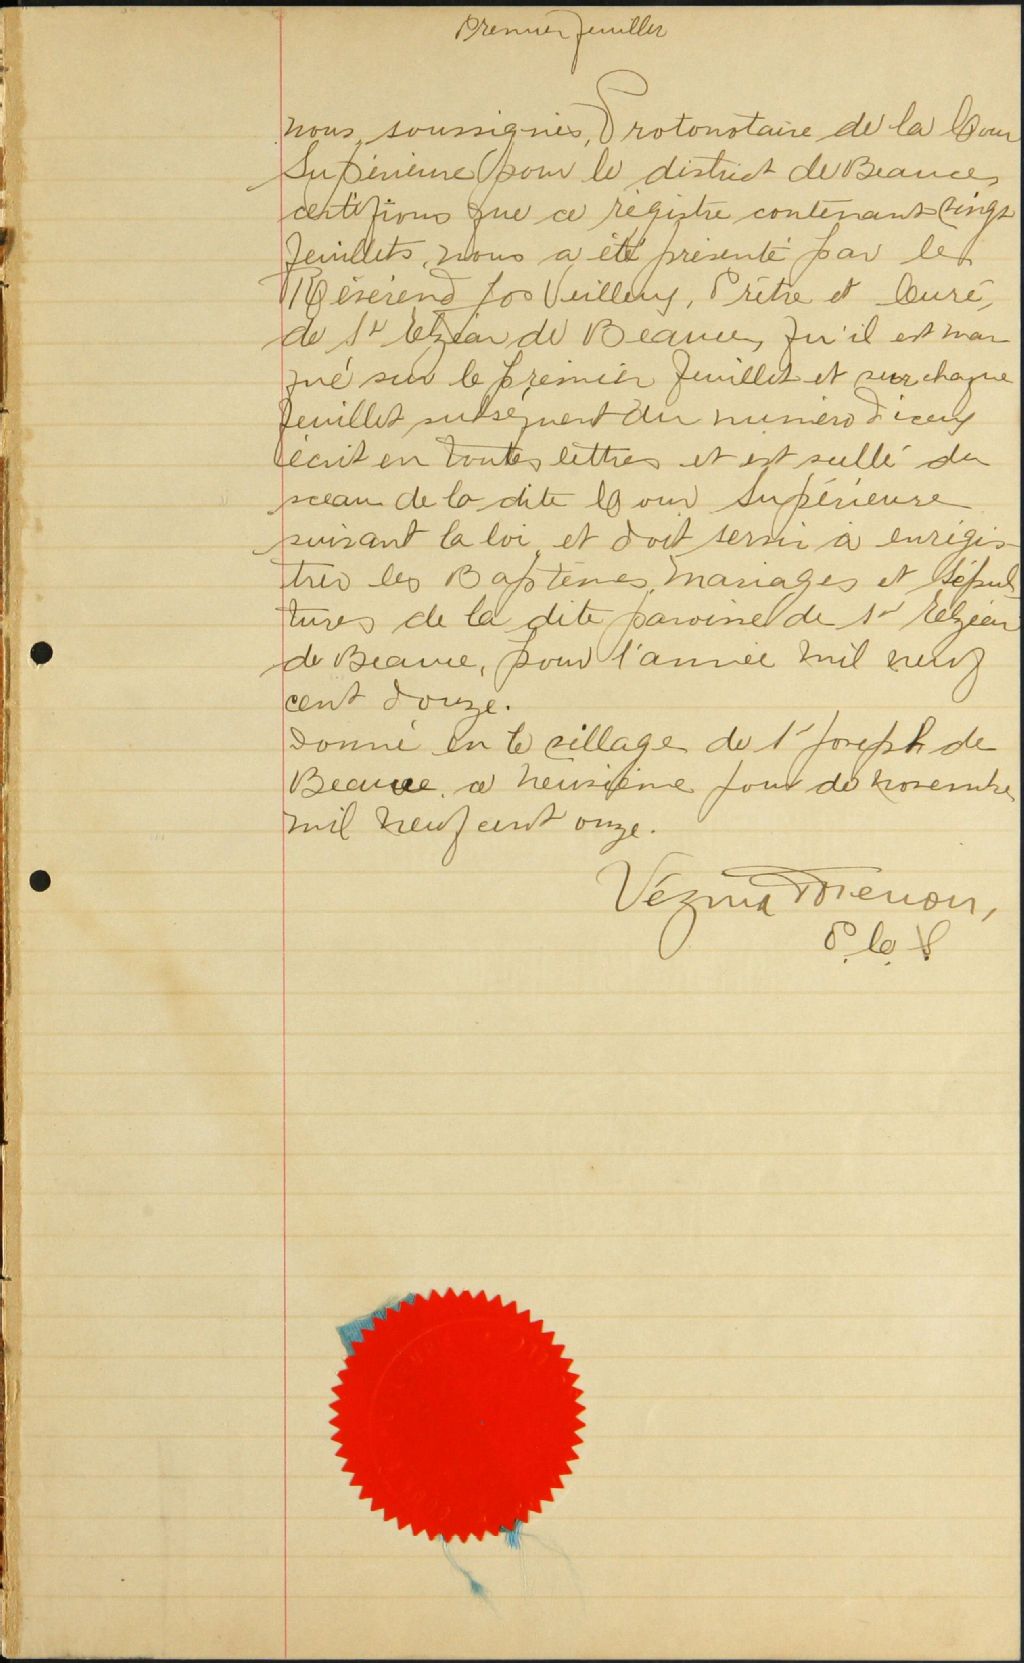 Premier feuillet
Nous, soussignés, Protonotaire de la Cour
Supérieure pour le district de Beauce,
certifions que ce régistre contenant vingt
feuillets, nous a été présenté par le
Révérend Jos Veilleux, Prêtre et Curé,
de St Elzéar de Beauce, qu'il est mar
qué sur le premier feuillet et sur chaque
feuillet subséquent du numéro d'iceux
écrit en toutes lettres et est scellé du
sceau de la dite Cour Supérieure
suivant la loi, et doit servir à enrégis-
trer les Baptêmes, Mariages et Sépul-
tures de la dite paroisse de St Elzéar
de Beauce, pour l'année mil neuf
cent douze.
Donné en le village de St Joseph de
Beauce, ce neuvième jour de novembre
mil neuf cent onze.
Vézina
P. C. S.